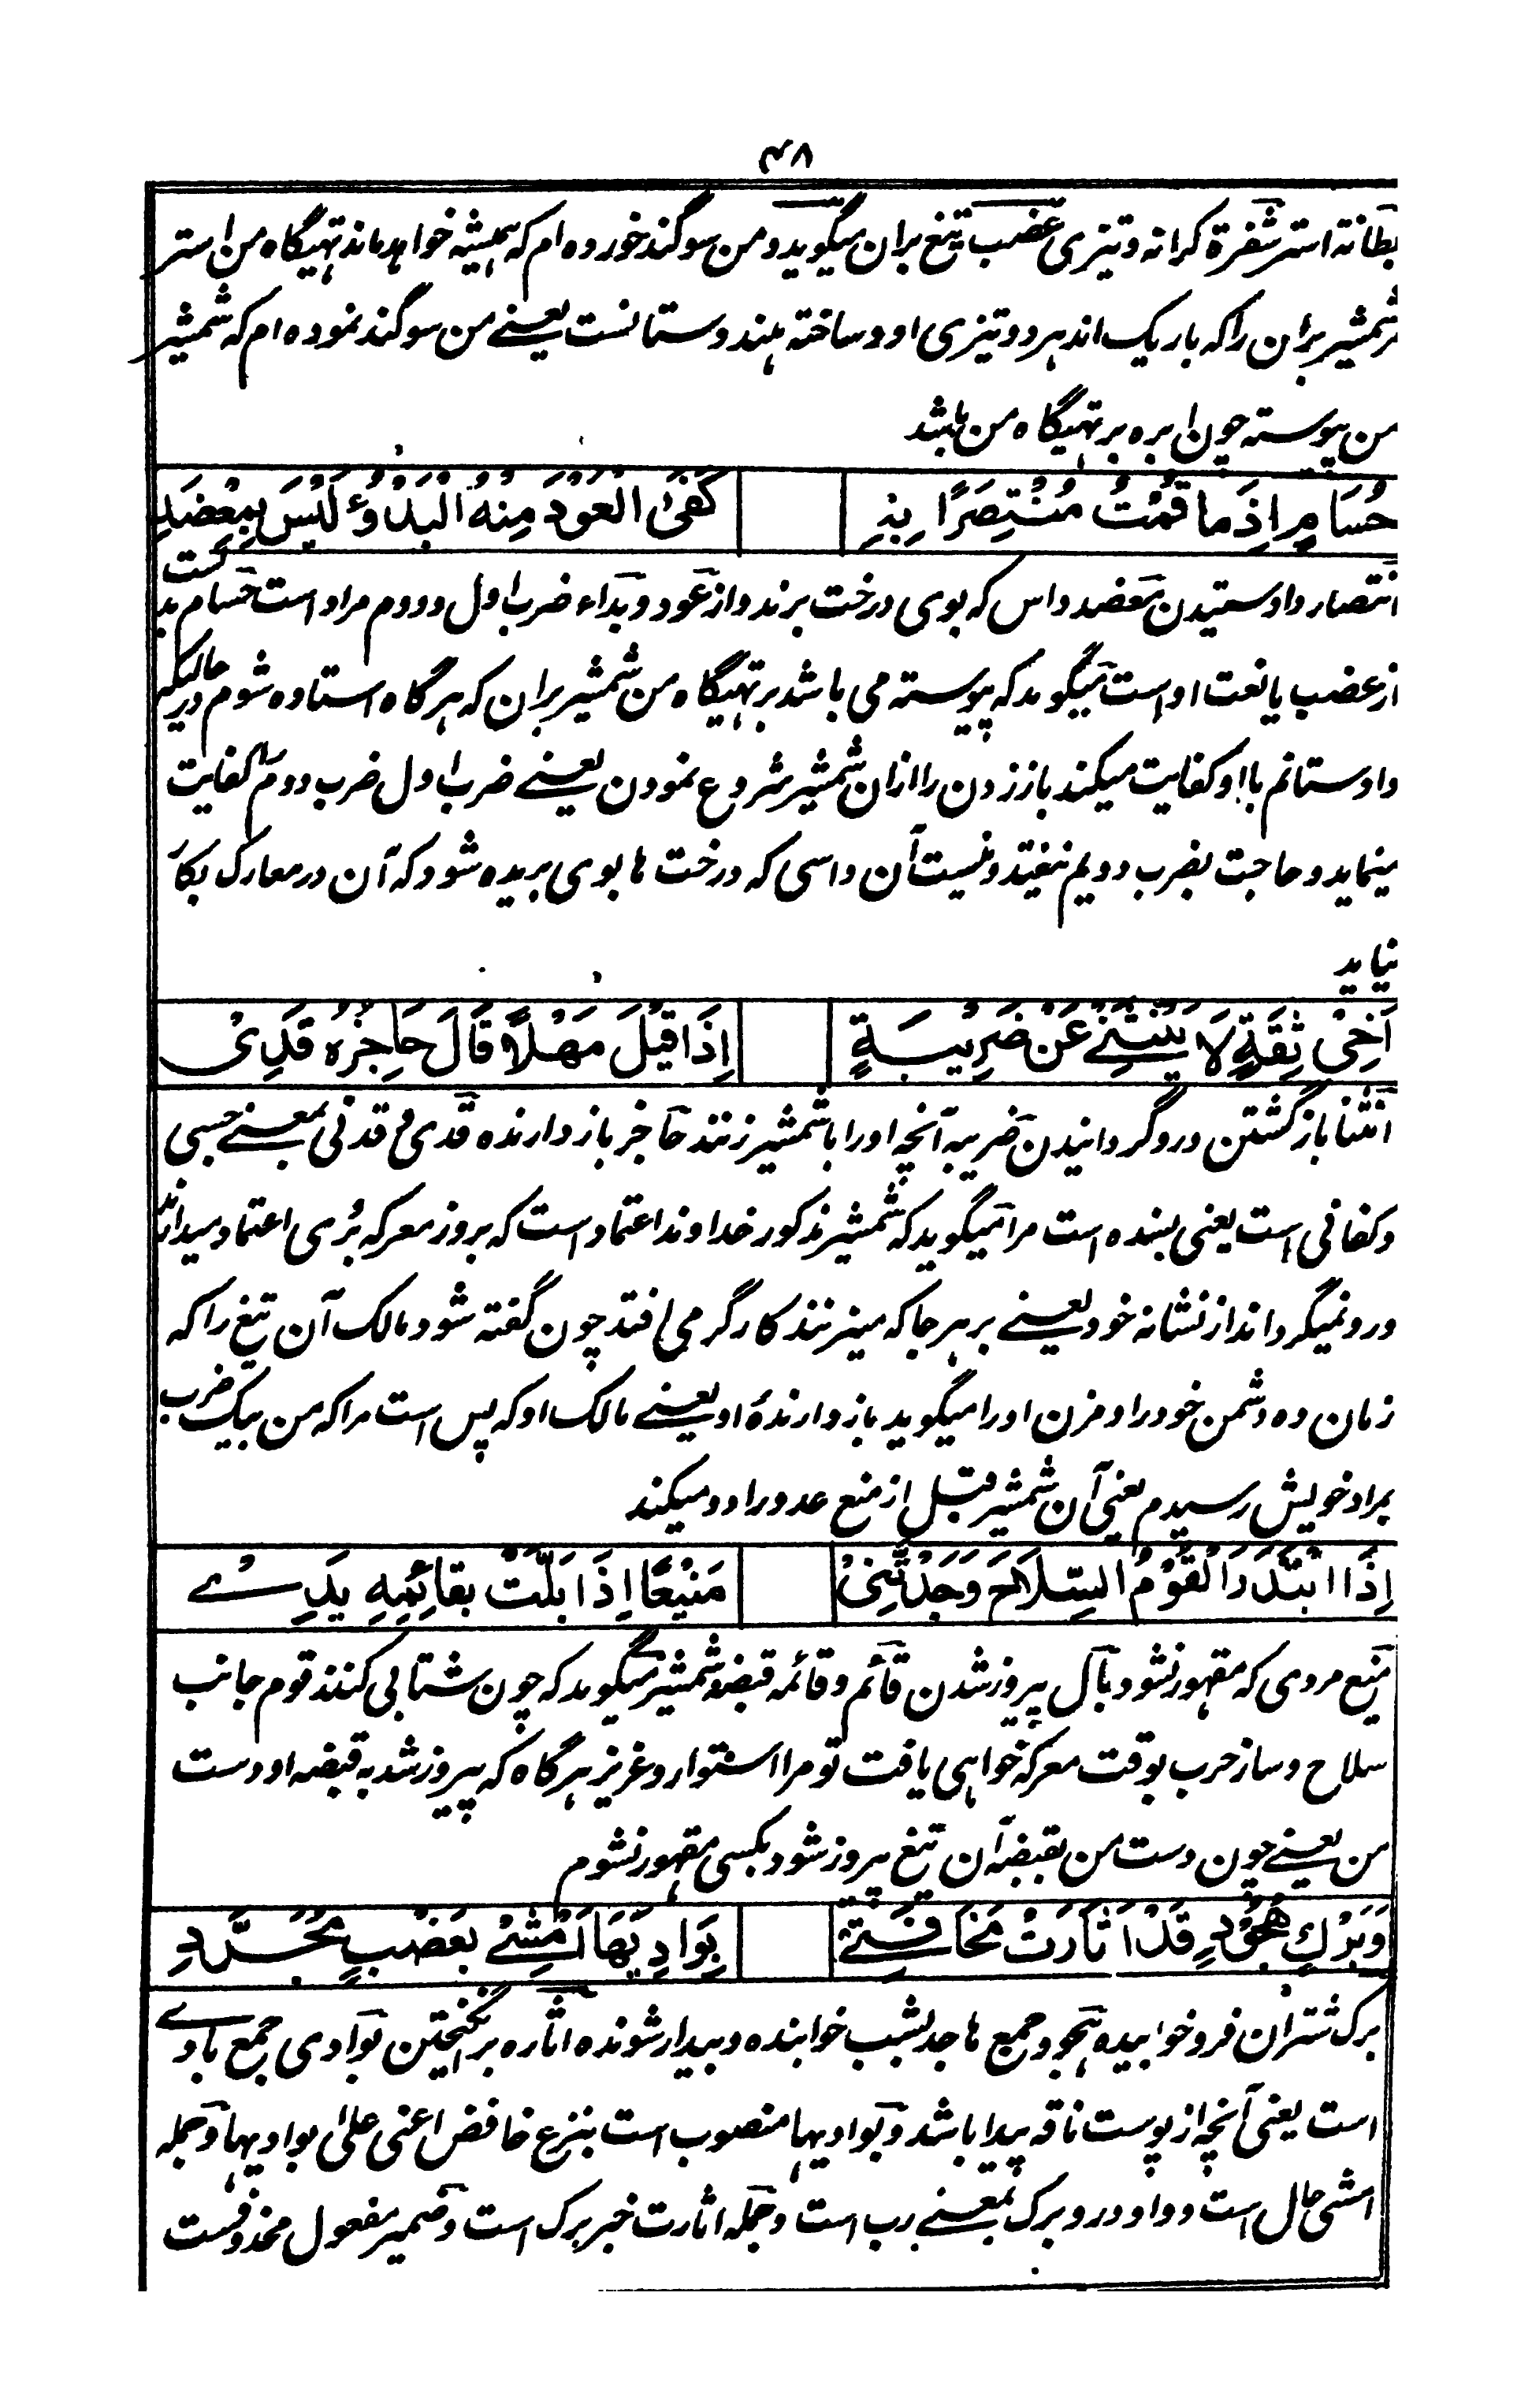 ۴۸
بطانة استر شفرة کرانه و تیزی عضب تیغ بران میگوید و من سوگند خورده ام که همیشه خواهد ماند تهیگاه من استر
شمشیر بران را که باریک اند هر دو تیزی او و ساخته هندوستانست یعنے من سوگند نموده ام که شمشیر
من پیوسته چون ابره بر تهیگاه من باشد
حُسَامٍ اِذَا مَا قُمْتُ مُنْتَصِرًا بِهٖ کَفَی الْعَوْدَ مِنْهُ الْبَدْءُ لَیْسَ بِمِعْضَدِ
انتصار داد ستیدن معضد داس که بوی درخت برند و از عود و بداء ضرب اول و دوم مراد است حسام بدلست
از عضب یا نعت اوست میگوید که پیوسته می باشد بر تهیگاه من شمشیر بران که هرگاه استاده شوم در حالیکه
داد ستانم با او کفایت میکند باز زدن را ازان شمشیر شروع نمودن یعنے ضرب اول ضرب دوم را کفایت
مینماید و حاجت بضرب دویم نیفتد و نیست آن داسی که درخت ها بوی بریده شود که آن در معارک بکار
نیاید
اَخِیْ ثِقَةٍ لَا یَنْثَنِیْ عَنْ ضَرِیْبَةٍ اِذَا قِیْلَ مَهْلًا قَالَ حَاجِزُهٗ قَدِیْ
انثنا بازگشتن و روگردانیدن ضریبه آنچه او را با شمشیر زنند حاجز باز دارنده قدی و قدنی بمعنے حسبی
و کفانی است یعنی بسنده است مرا میگوید که شمشیر مذکور خداوند اعتماد است که بروز معرکه بُری اعتماد میدارند
و رو نمیگرداند از نشانه خود یعنے بر هر جا که میزنند کارگر می افتد چون گفته شود مالک آن تیغ را که
زمان ده دشمن خود را و مزن او را میگوید باز دارندۀ او یعنے مالک او که بس است مرا که من بیک ضرب
بمراد خویش رسیدم یعنی آن شمشیر قبل از منع عدو را دو میکند
اِذَا ابْتَدَرَ الْقَوْمُ السِّلَاحَ وَجَدْتَّنِیْ مَنِیْعًا اِذَا بَلَّتْ بِقَائِمِهٖ یَدِیْ
منیع مردی که مقهور نشود بال پیروز شدن قائم و قائمه قبضۀ شمشیر میگوید که چون شتابی کنند قوم جانب
سلاح و ساز حرب بوقت معرکه خواهی یافت تو مرا استوار و عزیز هرگاه که پیروز شد به قبضه او دست
من یعنے چون دست من بقبضۀ آن تیغ پیروز شود بکسی مقهور نشوم
وَبَرْكِ هُجُوْدٍ قَدْ اَثَارَتْ مَخَافَتِیْ بَوَادِیَهَا اَمْشِیْ بِعَضْبٍ مُجَرَّدِ
برک شتران فرو خوابیده هجود جمع هاجد بشب خوابنده و بیدار شونده اثاره برانگیختن بوادی جمع بادے
است یعنی آنچه از پوست ناقه پیدا باشد و بوادیها منصوب است بنزع خافض اعنی علی بوادیها و جمله
امشی حال است و واو در و برک بمعنے رب است و جمله اثارت خبر برک است و ضمیر مفعول محذوفست